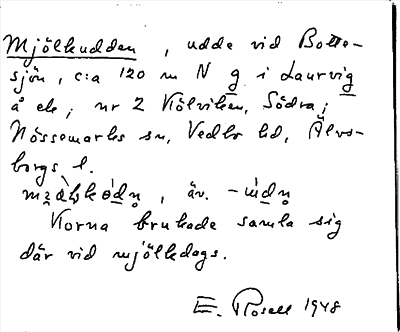 Mjölkudden, udde vid Botte-
sjön, c:a 120 m N g i Laurvig
å ek; nr 2 Kölviken, Södra;
Nössemarks sn, Vedbo hd, Älvs-
borgs l.
, äv.
Korna brukade samla sig
där vid mjölkdags.
E. Rosell 1948